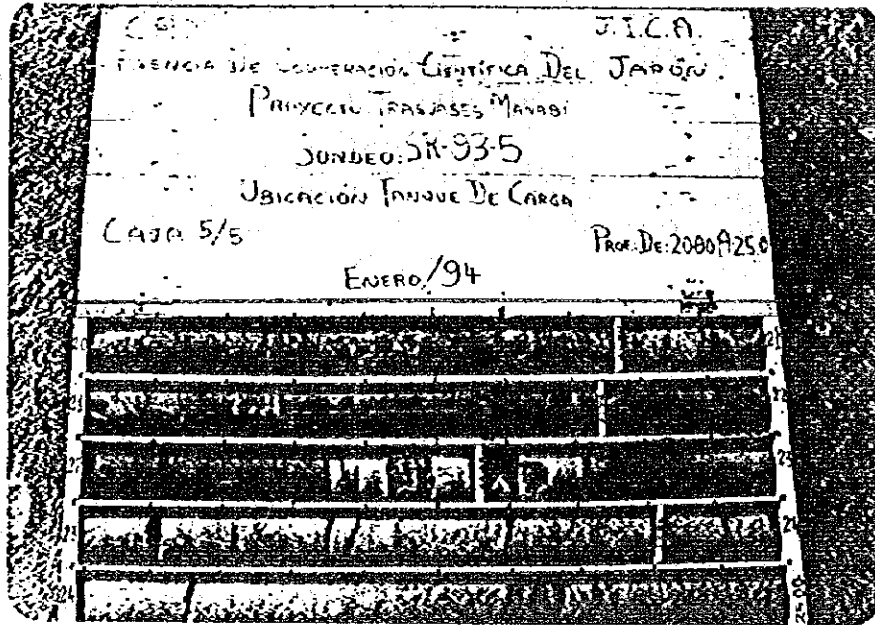 J.I.C.A.
DE COOPERACIÓN CIENTÍFICA DEL JAPÓN.
PROYECTO TRASVASES MANABI
SONDEO: SK-93-5
UBICACIÓN TANQUE DE CARGA
CAJA 5/5 PROF. DE: 20.00 A 25.0
ENERO/94
20 21
21 22
22 23
23 24
24